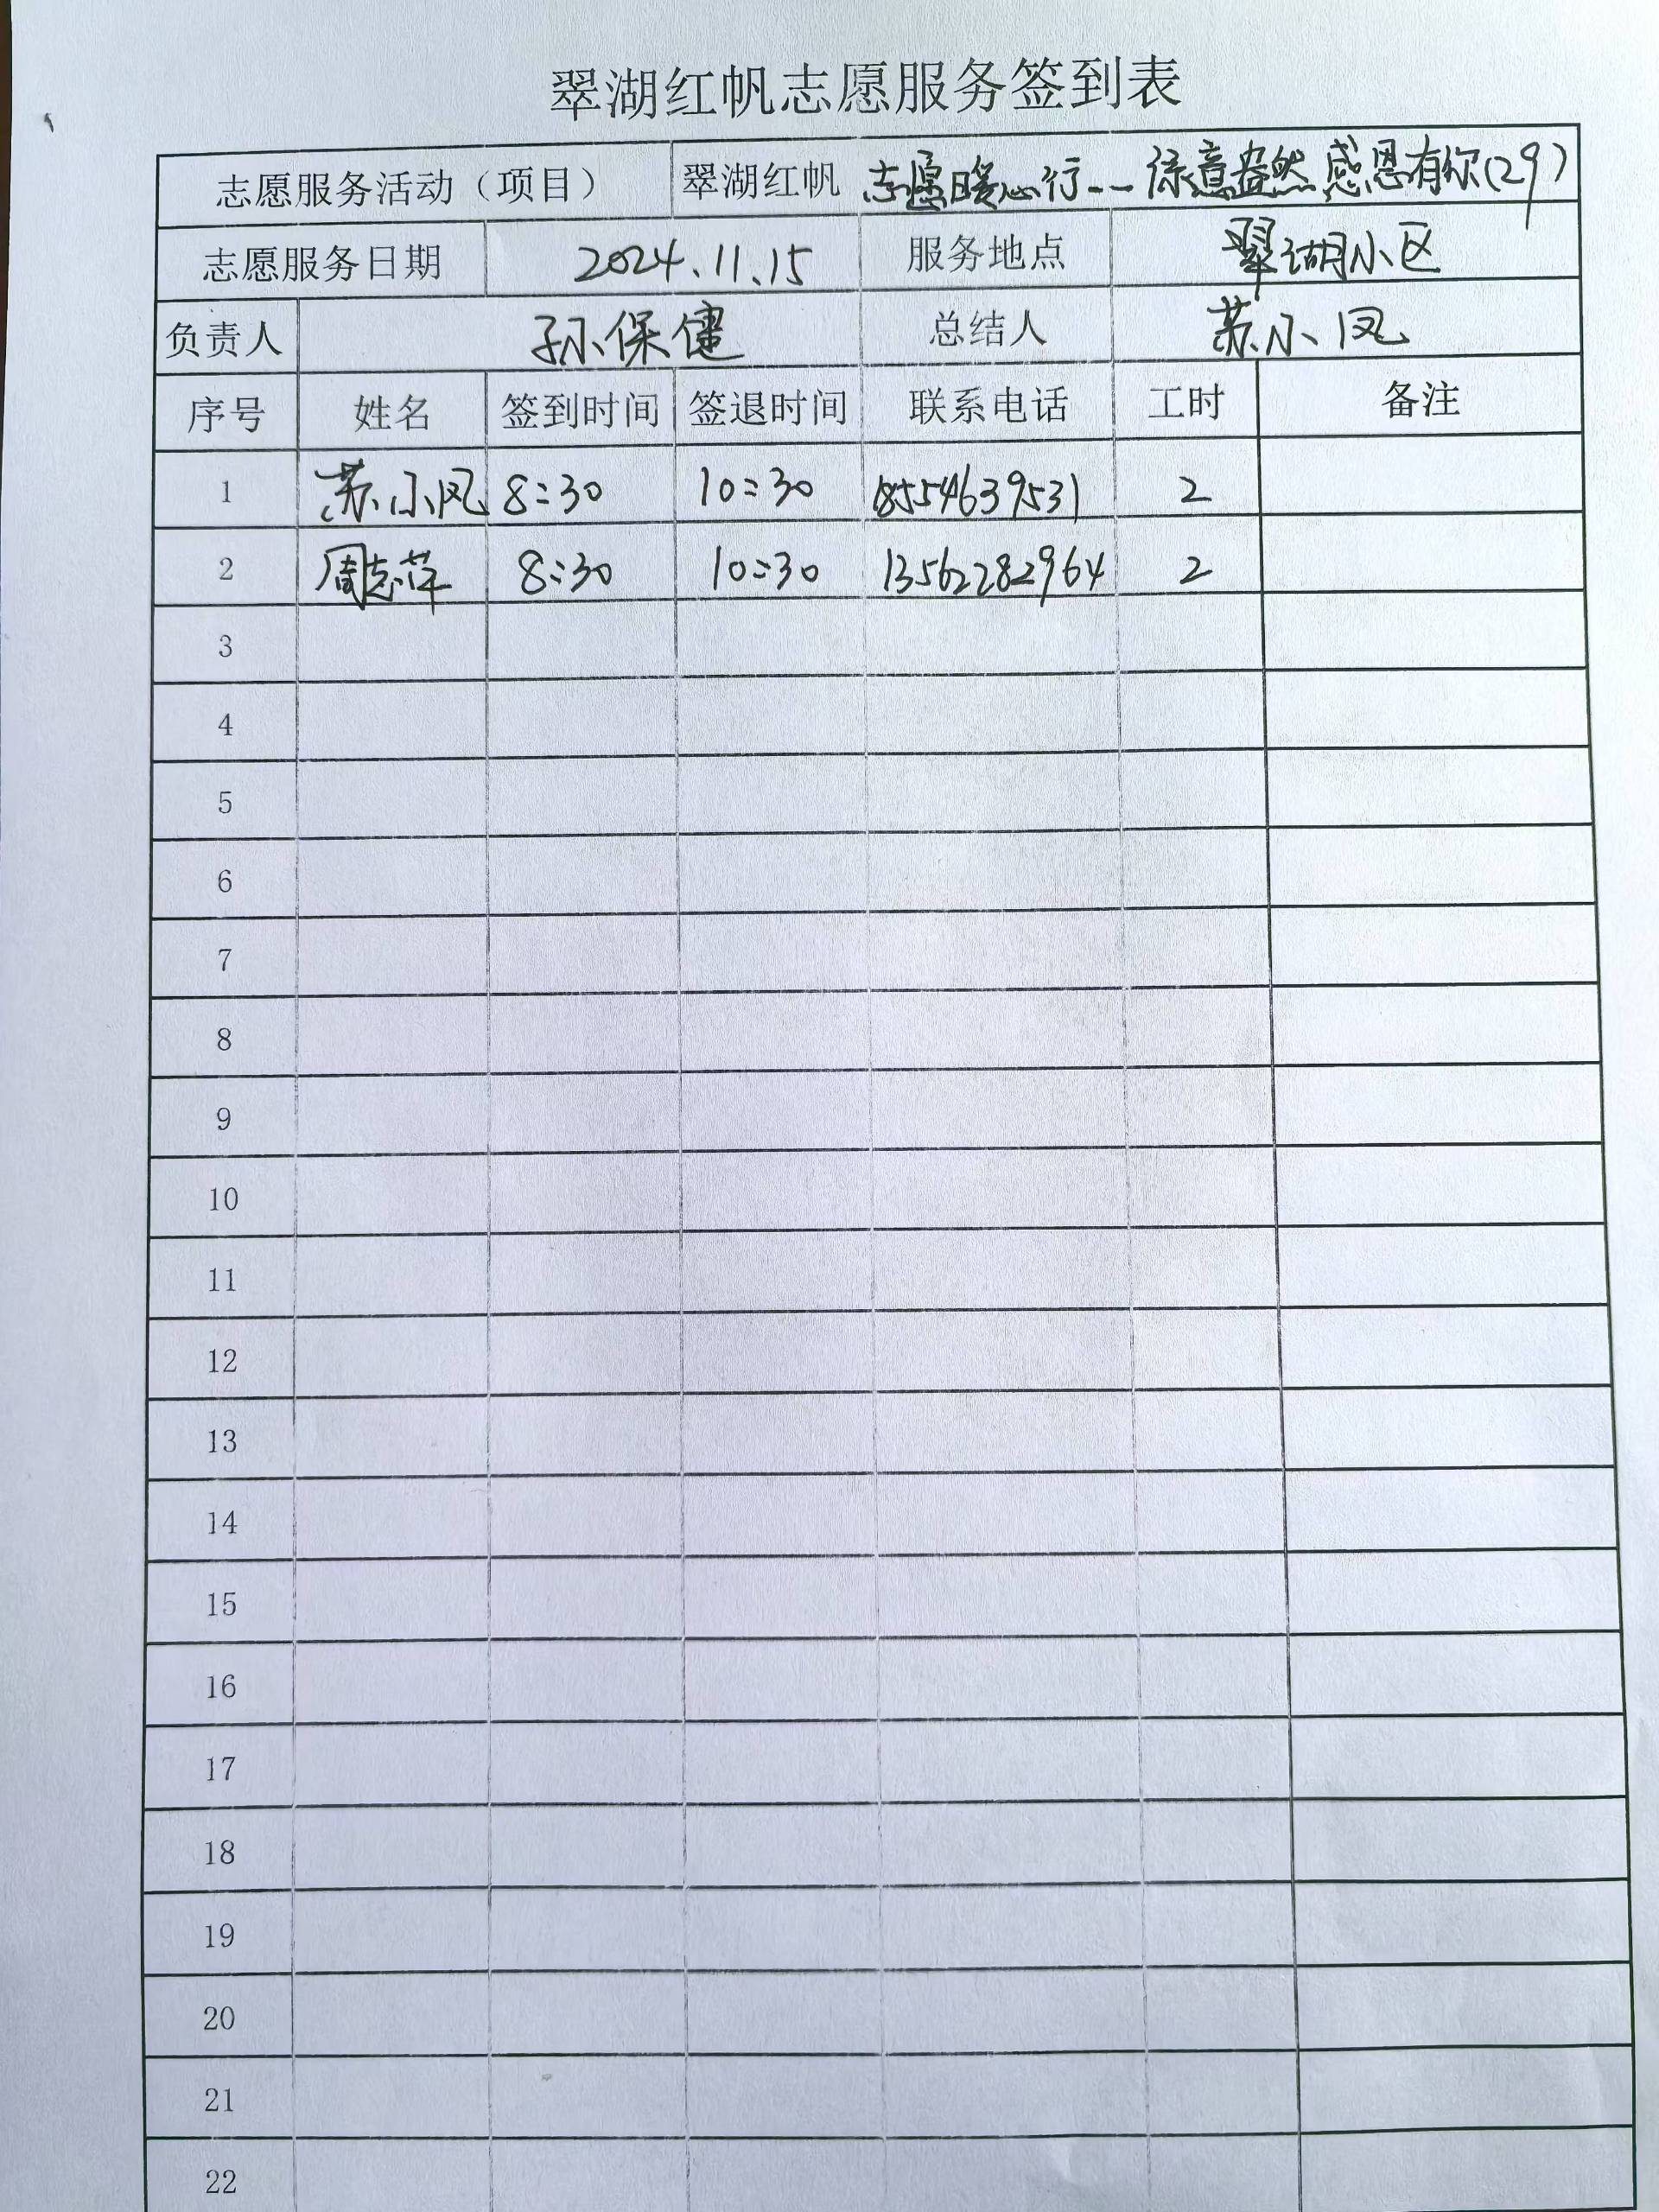 翠湖红帆志愿服务签到表
志愿服务活动（项目） 翠湖红帆 志愿暖心行--绿意盎然 感恩有你(29)
志愿服务日期 2024.11.15 服务地点 翠湖小区
负责人 孙保健 总结人 苏小凤
序号 姓名 签到时间 签退时间 联系电话 工时 备注
1 苏小凤 8:30 10:30 18554639531 2
2 周志萍 8:30 10:30 13562282964 2
3
4
5
6
7
8
9
10
11
12
13
14
15
16
17
18
19
20
21
22